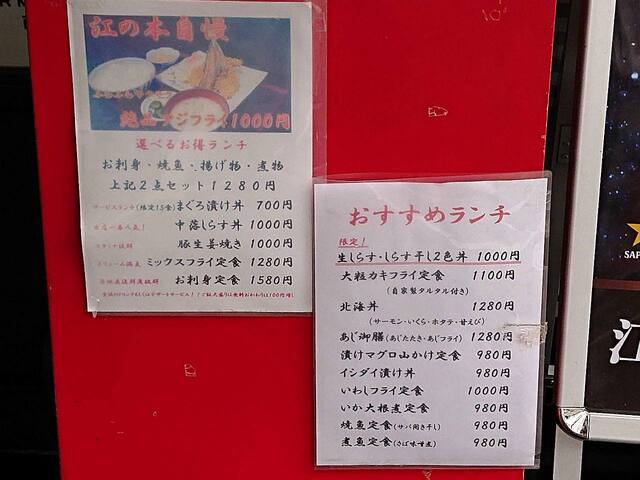 江の本自慢
絶品アジフライ1000円
選べるお得ランチ
お刺身・焼魚・揚げ物・煮物
上記2点セット1280円
サービスランチ(限定15食)まぐろ漬け丼 700円
当店一番人気! 中落しらす丼 1000円
スタミナ抜群 豚生姜焼き 1000円
ボリューム満点 ミックスフライ定食 1280円
お刺身定食 1580円
おすすめランチ
限定!
生しらす・しらす干し2色丼 1000円
大粒カキフライ定食 1100円
(自家製タルタル付き)
北海丼 1280円
(サーモン・いくら・ホタテ・甘えび)
あじ御膳(あじたたき・あじフライ) 1280円
漬けマグロ山かけ定食 980円
イシダイ漬け丼 980円
いわしフライ定食 1000円
いか大根煮定食 980円
焼魚定食(サバ開き干し) 980円
煮魚定食(さば味噌煮) 980円
江